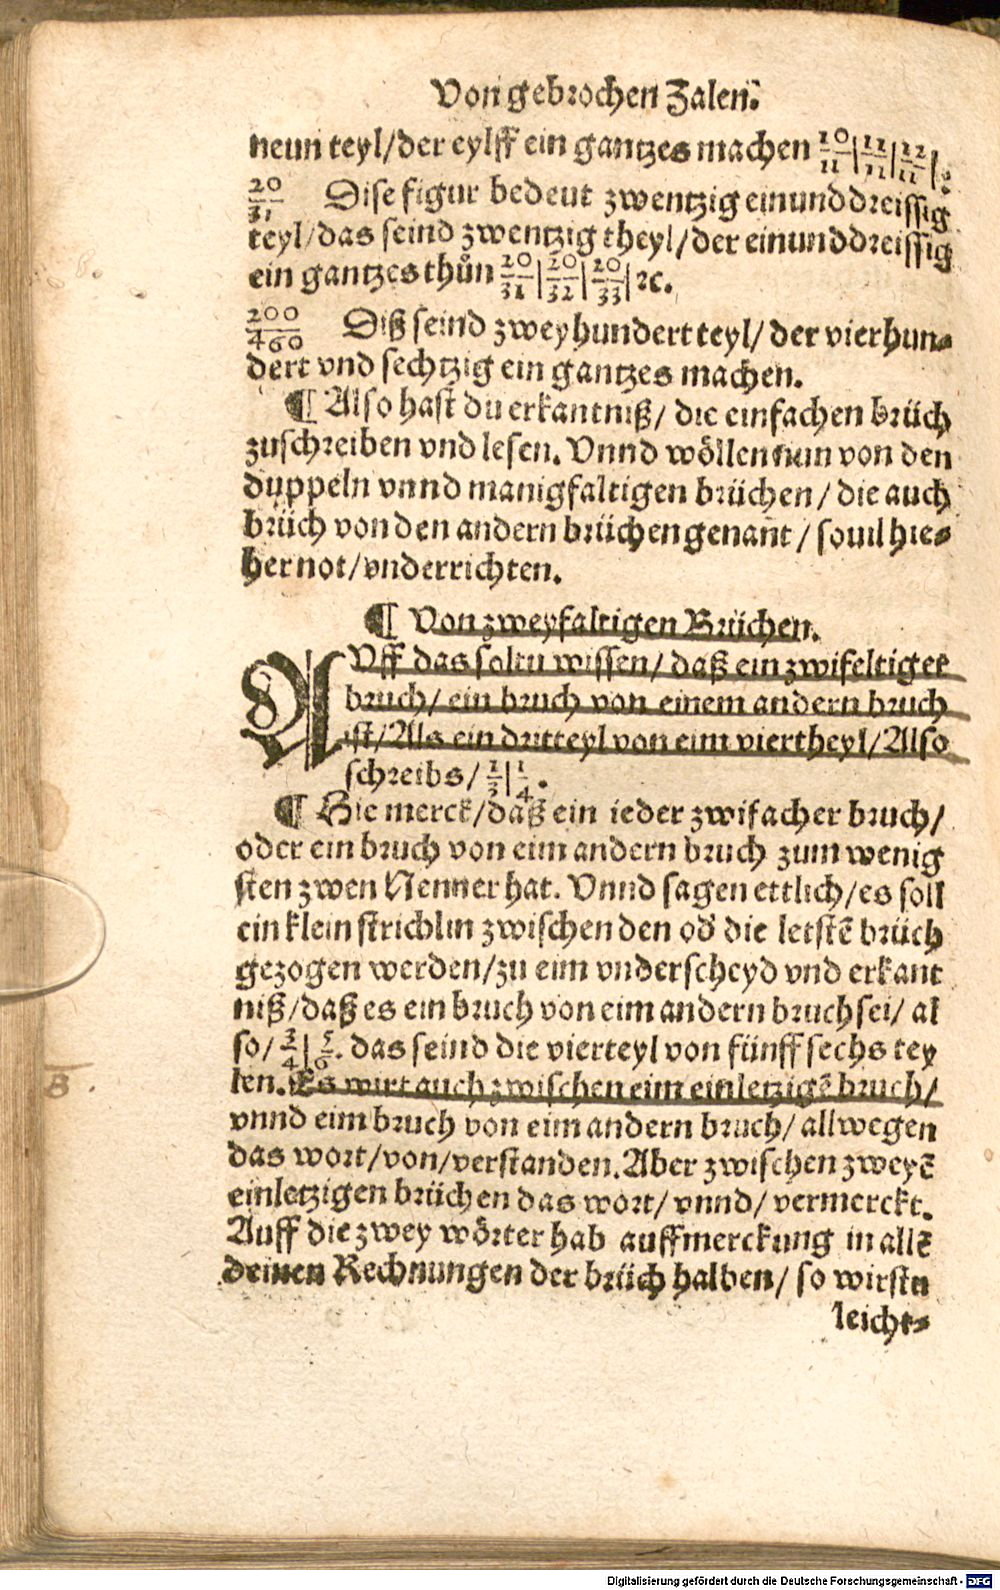 Von gebrochen Zalen.
neun teyl/der eylff ein gantzes machen 10/11|11/11|12/11|.
20/31 Dise figur bedeut zwentzig einunddreissig
teyl/das seind zwentzig theyl/der einunddreissig
ein gantzes thůn 20/31|20/32|20/33|ꝛc.
200/460 Diß seind zweyhundert teyl/ der vierhun-
dert vnd sechtzig ein gantzes machen.
¶ Also hast du erkantniß/ die einfachen brüch
zuschreiben vnd lesen. Vnnd wöllen nun von den
duppeln vnnd manigfaltigen brüchen/ die auch
brüch von den andern brüchen genant/ souil hie-
her not/vnderrichten.
¶ Von zweyfaltigen Brüchen.
AVff das soltu wissen/ daß ein zwifeltiger
bruch/ ein bruch von einem andern bruch
ist/Als ein dritteyl von eim viertheyl/Also
schreibs/ 1/3|1/4.
¶ Hie merck/daß ein ieder zwifacher bruch/
oder ein bruch von eim andern bruch zum wenig
sten zwen Nenner hat. Vnnd sagen ettlich/es soll
ein klein strichlin zwischen den od' die letstẽ brüch
gezogen werden/zu eim vnderscheyd vnd erkant
niß/daß es ein bruch von eim andern bruch sei/ al
so/ 3/4|5/6. das seind die vierteyl von fünff sechs tey
len. Es wirt auch zwischen eim einletzigẽ bruch/
vnnd eim bruch von eim andern bruch/ allwegen
das wort/von/verstanden. Aber zwischen zweyẽ
einletzigen brüchen das wort/ vnnd/ vermerckt.
Auff die zwey wörter hab auffmerckung in allẽ
deinen Rechnungen der brüch halben/ so wirstu
leicht-
B.
Digitalisierung gefördert durch die Deutsche Forschungsgemeinschaft - DFG